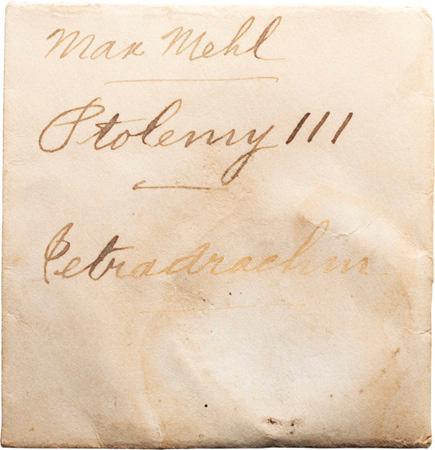 Max Mehl
Ptolemy III
Tetradrachm